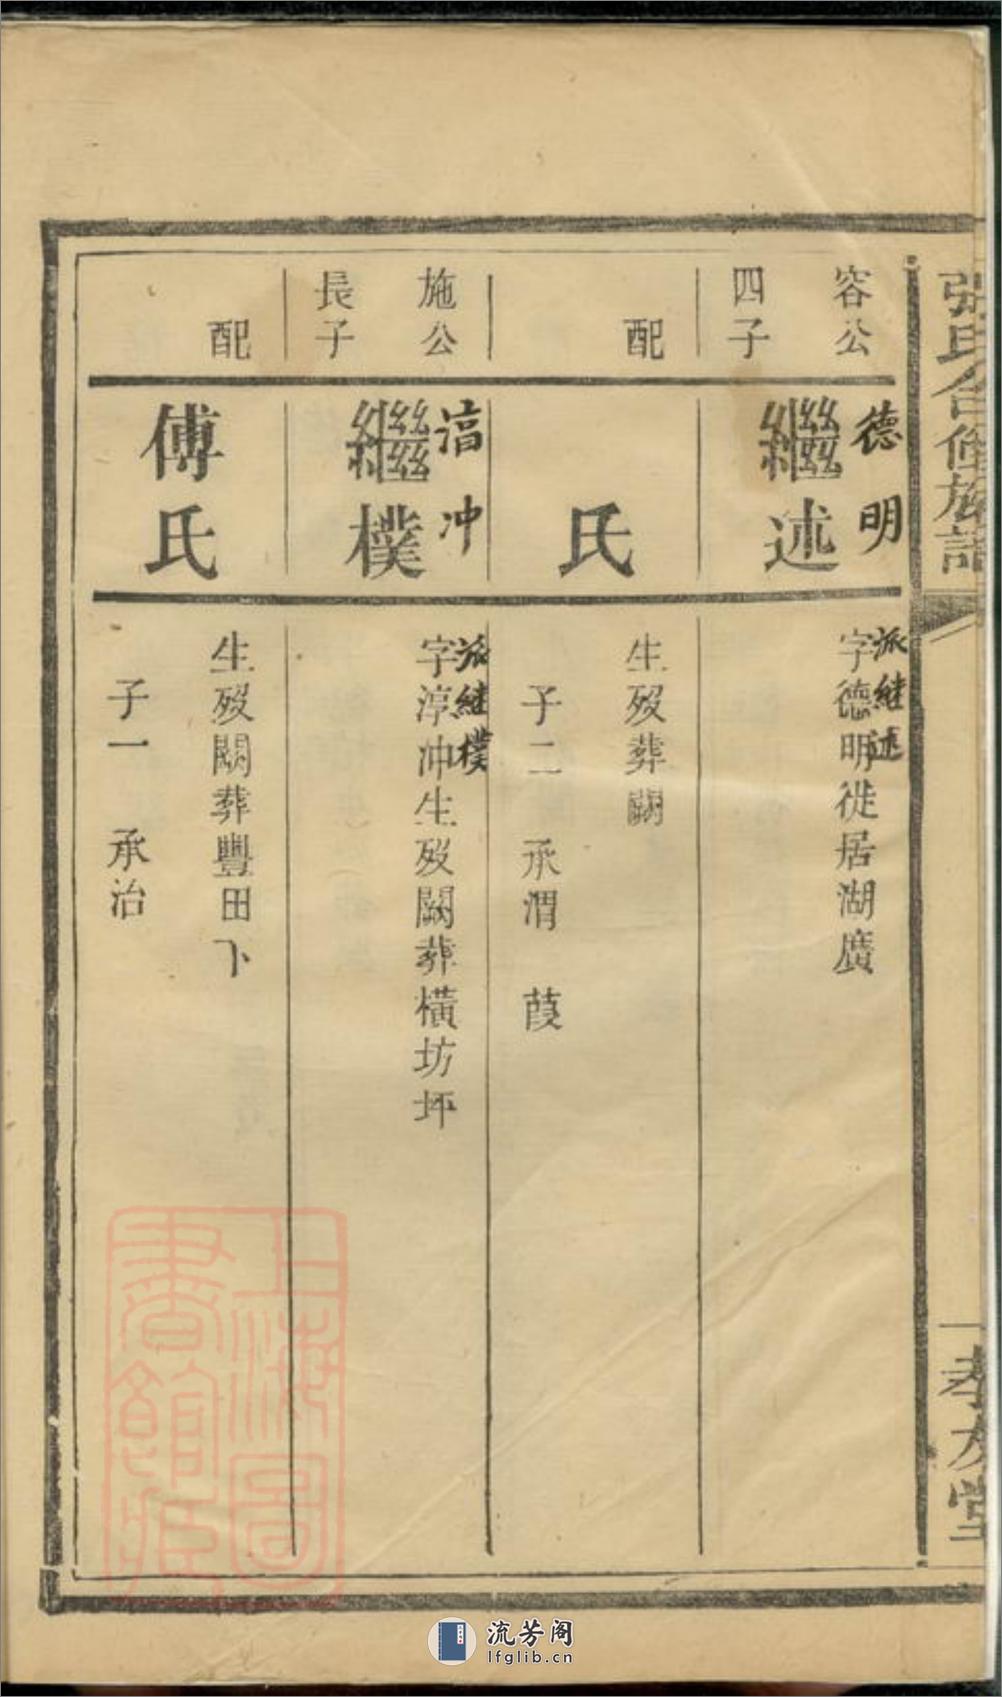 張氏合修族譜
一 孝友堂
容公
四子
德明
繼述
派繼述
字德明徙居湖廣
配
氏
生歿葬闕
子二 承渭 葭
施公
長子
冲
繼樸
派継樸
字淳冲生歿闕葬橫坊坪
配
傅氏
生歿闕葬豐田下
子一 承治
上海圖
書館藏
流芳阁
lfglib.cn